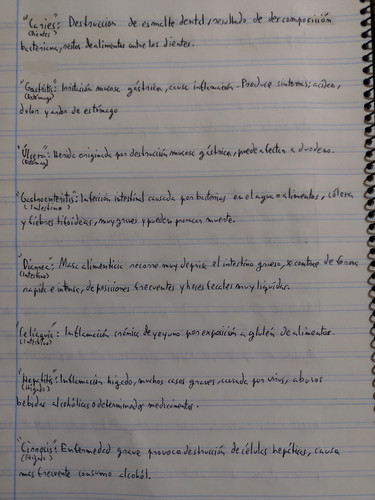 "Caries": Destrucción de esmalte dental, resultado de descomposición
(Dientes)
bacteriana, restos de alimentos entre los dientes.
"Gastritis": Irritación mucosa gástrica, causa inflamación. Produce síntomas; acidez,
(Estómago)
dolor y ardor de estómago
"Úlcera": Herida originada por destrucción mucosa gástrica, puede afectar a duodeno.
(Estómago)
"Gastroenteritis": Infección intestinal causada por bacterias en el agua o alimentos, cólera
(Intestino)
y fiebres tifoideas, muy graves y pueden provocar muerte.
"Diarrea": Masa alimenticia recorre muy deprisa el intestino grueso, se contrae de forma
(Intestino)
rapida e intensa, deposiciones frecuentes y heces fecales muy líquidas.
"Celiaquía": Inflamación crónica de yeyuno por exposición a gluten de alimentos.
(Intestino)
"Hepatitis": Inflamación hígado, muchos casos graves, causada por virus, abusos
(Hígado)
bebidas alcohólicas o determinados medicamentos.
"Cirrosis": Enfermedad grave provoca destrucción de células hepáticas, causa
(Hígado)
mas frecuente consumo alcohól.